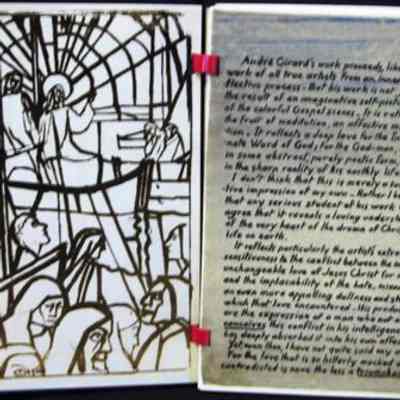 André Girard's work proceeds, like
work of all true artists from an inner
flective process - But his work is not
the result of an imaginative self-pict
of the colorful Gospel scenes. It is rath
the fruit of meditation, an affective m
tion. It reflects a deep love for the In
nate Word of God, for the God-man,
in some abstract, purely poetic form,
in the sharp reality of his earthly life
I don't think that this is merely a
tive impression of my own - Rather I b
that any serious student of his work
agree that it reveals a loving unders
of the very heart of the drama of Chri
life on earth.
It reflects particularly the artist's extra
sensitiveness to the conflict between the
unchangeable love of Jesus Christ for
and the implacability of the hate, misun
an even more appalling dullness and
which that love encountered. His produc
are the expression of a man who not
conceives this conflict in his intelligence
has deeply absorbed it into his own affe
Yet, even then, I have not quite said my
For the love that is so bitterly mocked
contradicted is none the less a